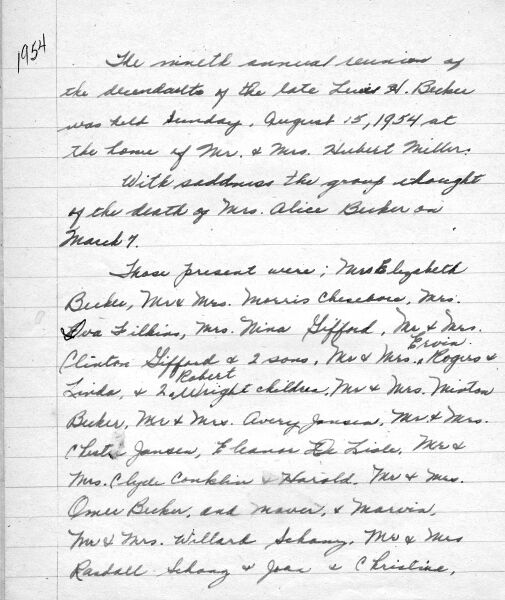 1954
The nineth annual reunion of
the decendants of the late Luis H. Becker
was held Sunday, August 15, 1954 at
the home of Mr. & Mrs. Hubert Miller.
With saddness the group thought
of the death of Mrs. Alice Becker on
March 7.
Those present were; Mrs Elizabeth
Becker, Mr & Mrs. Morris Chesebore, Mrs.
Eva Filkins, Mrs. Nina Gifford, Mr & Mrs.
Ervin
Clinton Gifford & 2 sons, Mr & Mrs. Rogers &
Robert
Linda, & 2 Wright children, Mr & Mrs. Minton
Becker, Mr & Mrs. Avery Jansen, Mr & Mrs.
Jansen, Eleanor De Lisle, Mr &
Mrs. Clyde Conklin & Harold, Mr & Mrs.
Omer Becker, and & Marvin,
Mr & Mrs. Willard Schanz, Mr & Mrs
Randall Schanz & Joan & Christine,